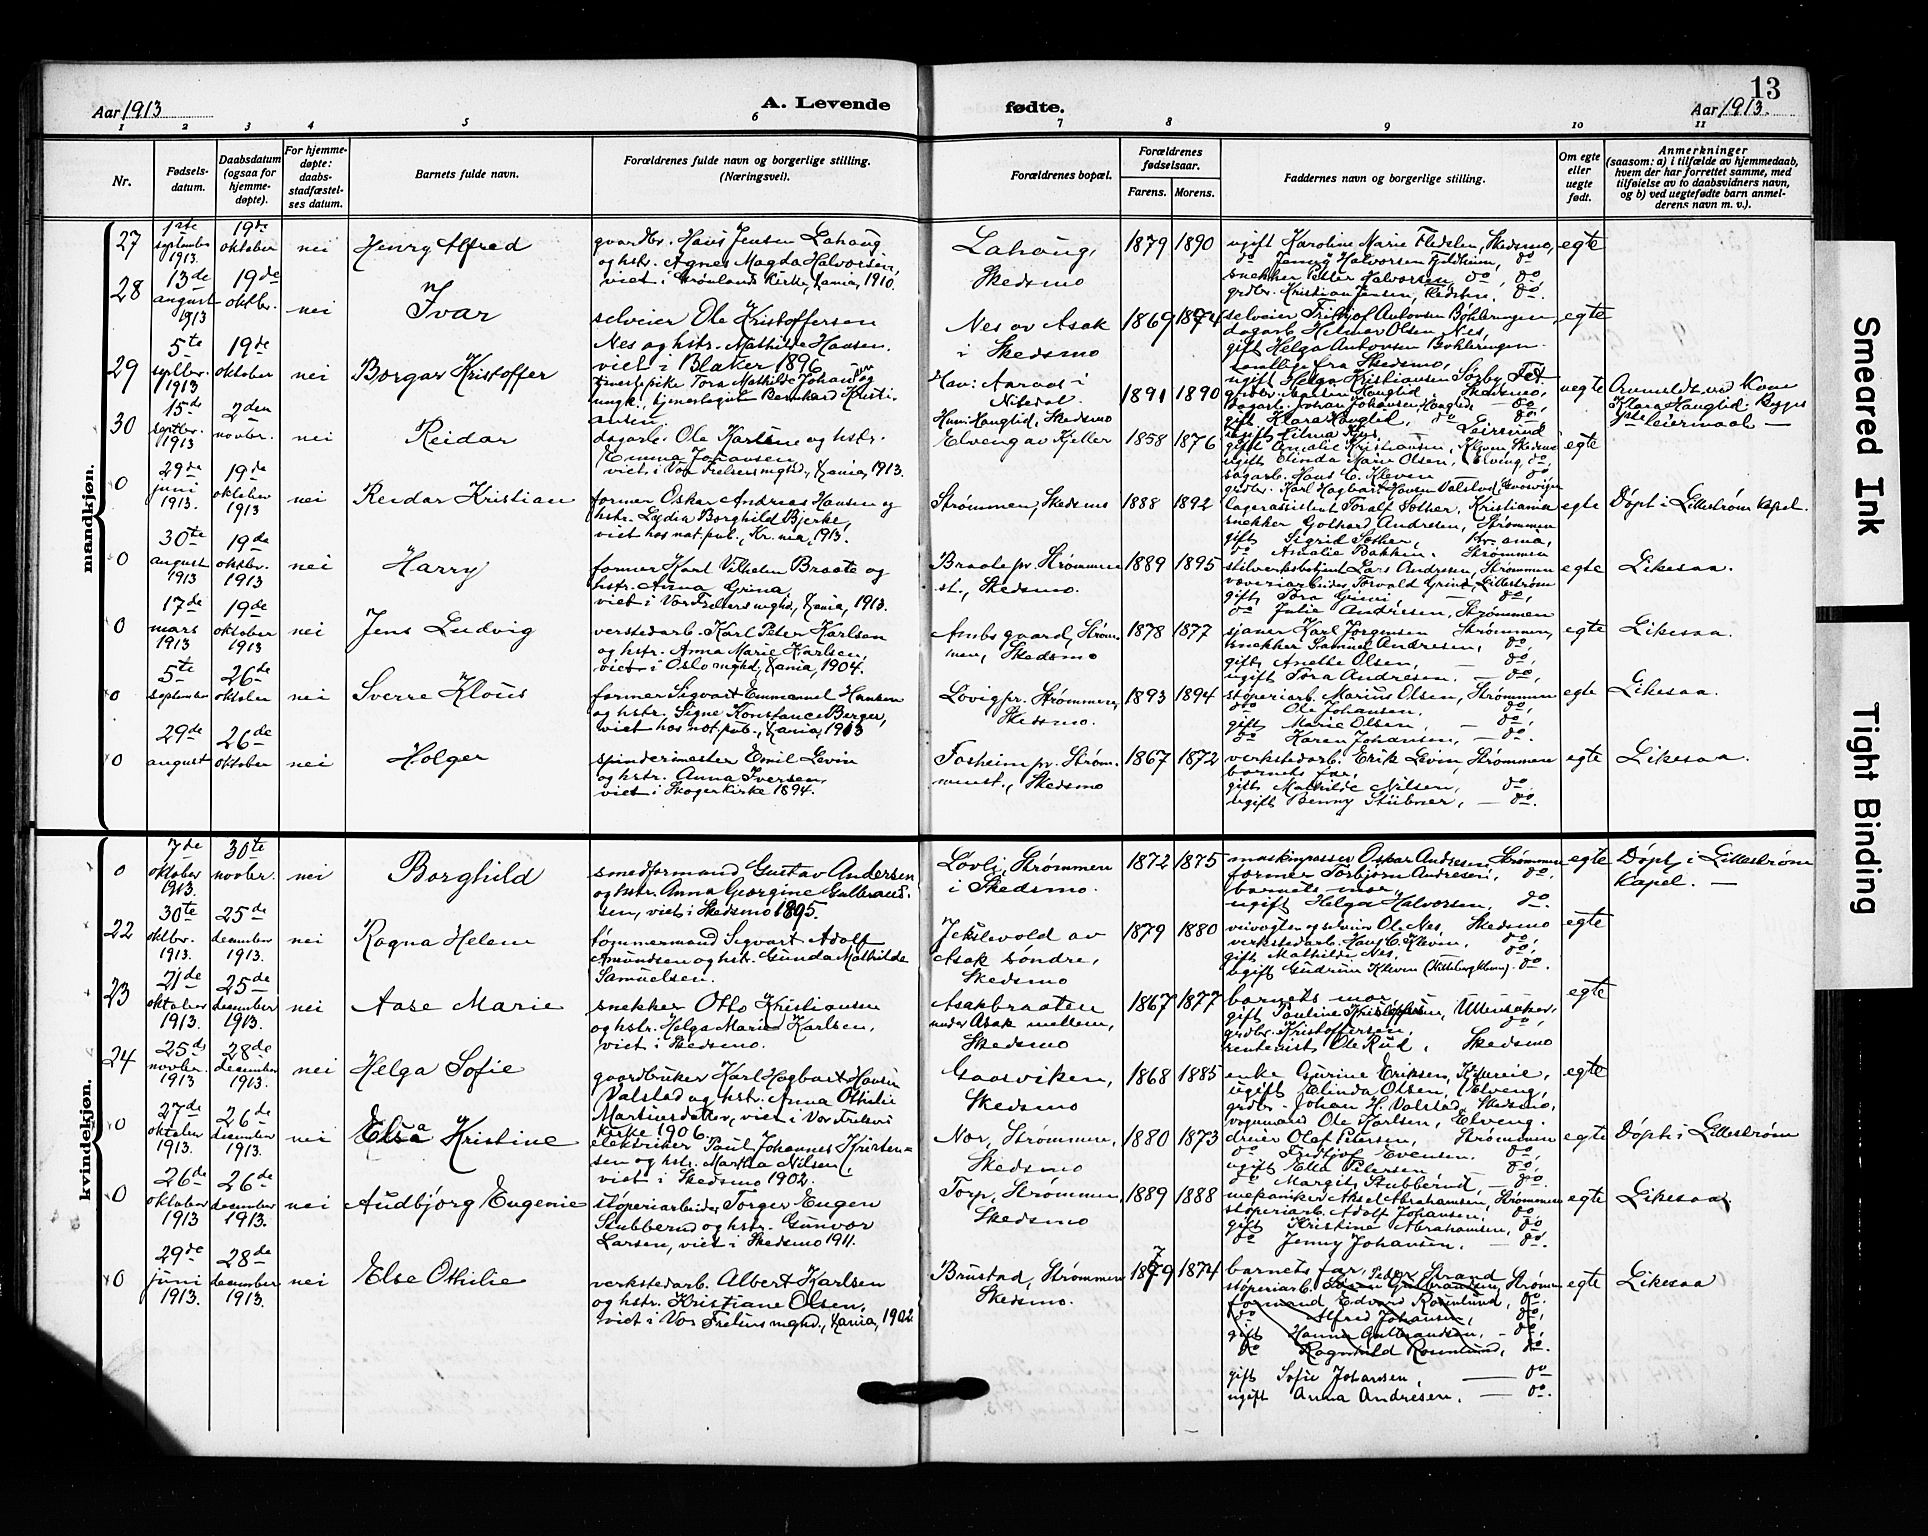 13
Aar 1913
A. Levende
fødte.
Aar 1913.
1 2 3 4 5 6 7 8 9 10 11
Nr.
Fødsels-
datum.
Daabsdatum
(ogsaa for
hjemme-
døpte).
For hjemme-
døpte:
daabs-
stadfæstel-
ses datum.
Barnets fulde navn.
Forældrenes fulde navn og borgerlige stilling.
(Næringsvei).
Forældrenes bopæl.
Forældrenes
fødselsaar.
Farens. Morens.
Faddernes navn og borgerlige stilling.
Om egte
eller
uegte
født.
Anmerkninger
(saasom: a) i tilfælde av hjemmedaab,
hvem der har forrettet samme, med
tilføielse av to daabsvidners navn,
og b) ved uegtefødte barn anmel-
derens navn m. v.).
mandkjøn.
27
1ste
september
1913.
19de
oktober
nei
Henry Alfred
gaardbr. Hans Jensen Lahaug
og hstr. Agnes Magda Halvorsen,
viet i Grønlands Kirke, Xania, 1910.
Lahaug,
Skedsmo
1879 1890
ugift Karoline Marie Skedsmo,
do Jenny Halvorsen Fjeldheim, do
snekker Petter Halvorsen, do, do
grdbr. Kristian Jensen, do.
egte
28
13de
august
1913
19de
oktbr.
nei
Ivar
selveier Ole Kristoffersen
Nes og hstr. Mathilde Hansen.
viet i Blaker 1896
Nes av Asak
i Skedsmo
1869 1874
selveier Fritjof Antonsen Bøhleringen,
dagarb. Helmer Olsen Nes,
gift Helga Antonsen Bøhleringen
samtlige fra Skedsmo,
egte
29
5te
septbr.
1913
19de
oktober
nei
Borgar Kristoffer
tjenestepike Tora Mathilde Johansen og
ungk., tjenestegut Bernhard Kristi-
ansen
Hav: Aaraas i
Nitedal.
Hun: Hauglid, Skedsmo
1891 1890
ugift Helga Kristiansen Sørby, Fet
grdbr. Hauglid, Skedsmo,
dagarb. Johan Johansen Hauglid do,
gift Klara Hauglid, do do
uegte
Anmeldt ved Kone
Klara Hauglid. Begges
1ste leiermaal —
30
15de
septbr.
1913
2den
novbr.
nei
Reidar
dagarb. Ole Karlsen og hstr.
Emma Johansen
viet i Vor Frelsers mghd, Xania, 1913.
Elveng av Kjeller
1858 1876
Leirsund
gift Amalie Kristiansen, Kleven, Skedsmo
ugift Elinda Marie Olsen, Elveng, do,
sagarb. Hans C. Kleven do
grdbr. Karl Hagbart Hansen Valstad, Gaasviken
egte
0
29de
juni
1913.
19de
oktober
1913
nei
Reidar Kristian
former Oskar Andreas Hansen og
hstr. Lydia Borghild Bjerke,
viet hos not. pub., Kr.nia, 1913.
Strømmen, Skedsmo
1888 1892
lagerassistent Toralf Sæther, Kristiania
snekker Gothard Andresen, Strømmen
gift Sigrid Sæther, Kr.ania,
do Amalie Bakken. Strømmen
egte
Døpt i Lillestrøm Kapel.
0
30te
august
1913
19de
oktbr.
1913
nei
Harry
former Karl Vilhelm Braate og
hstr. Anna Grina,
viet i Vor Frelsers mghd, Xania, 1913.
Braate pr. Strømmen
st., Skedsmo.
1889 1895
stilverksbetjent Lars Andresen, Strømmen
væveriarbeider Torvald Grina, Lillestrøm
gift Tora Grini — do,
do Julie Andresen, Strømmen
egte
Likesaa.
0
17de
mars
1913
19de
oktober
1913
nei
Jens Ludvig
verstedarb. Karl Peter Karlsen
og hstr. Anna Marie Karlsen,
viet i Oslo mghd, Xania, 1904.
Ambs gaard, Strøm-
men, Skedsmo
1878 1877
Karl Jørgensen Strømmen,
snekker Samuel Andresen, do,
gift Anette Olsen, — do,
ugift Tora Andresen, — do,
egte
Likesaa.
0
5te
september
26de
oktober
nei
Sverre Klous
former Sigvart Emmanuel Hansen
og hstr. Signe Konstance Berger,
viet hos not. pub., Xania, 1913
Løvig pr. Strømmen,
Skedsmo.
1893 1894
støperiarb. Marius Olsen, Strømmen
do Ole Johansen, do,
gift Marie Olsen — do,
do Karen Johansen, — do.
egte
Likesaa.
0
29de
august
26de
oktober
nei
Holger
spindemester Emil Levin
og hstr. Anna Iversen,
viet i Skoger kirke 1894.
Fosheim pr. Strøm-
menst., Skedsmo
1867 1872
verkstedarb. Erik Levin, Strømmen
barnets far,
gift Mathilde Nilsen, do.
ugift Benny Stübner, — do.
egte
Likesaa.
kvindekjøn.
0
7de
oktober
1913.
30te
novbr.
nei
Borghild
smedformand Gustav Andersen
og hstr. Anna Georgine Gulbrand-
sen, viet i Skedsmo 1895.
Løvli, Strømmen
i Skedsmo.
1872 1875
maskinpasser Oskar Andresen, Strømmen
former Torbjørn Andresen, do.
barnets mor,
ugift Helga Halvorsen, do.
egte
Døpt i Lillestrøm
Kapel. —
22
30te
oktbr.
1913.
25de
desember
1913.
nei
Ragna Helene
tømmermand Sigvart Adolf
Amundsen og hstr. Gunda Mathilde
Samuelsen.
Jekslevold av
Asak søndre,
Skedsmo
1879 1880
veivogter og selveier Ole Nes, Skedsmo
verkstedarb. Hans C. Kleven, do,
gift Mathilde Nes, do.
ugift Gudrun Kleven do.
egte
23
21de
oktober
1913.
25de
desember
1913.
nei
Aase Marie
snekker Otto Kristiansen
og hstr. Helga Marie Karlsen,
viet i Skedsmo.
Asakbraaten
under Asak mellem,
Skedsmo
1867 1877
barnets mor,
gift Pauline Kristoffersen, Ullensaker,
grdbr. Kristoffersen, do,
rentenist Ole Rud, Skedsmo
egte
24
25de
novbr.
1913
28de
desember
1913.
nei
Helga Sofie
gaardbruker Karl Hagbart Hansen
Valstad og hstr. Anna Othilie
Martinusdatter, viet i Vor Frelsers
kirke 1906.
Gaasviken,
Skedsmo
1868 1885
enke Gurine Eriksen,
ugift Elinda Olsen, Elveng,
grdbr. Johan H. Valstad, Skedsmo,
vognmand Ole Karlsen, Elveng.
egte
0
27de
oktober
1913.
26de
desember
1913.
nei
Elsa Kristine
elektriker Paul Johannes Kristen-
sen og hstr. Martha Nilsen,
viet i Skedsmo 1902.
Nor, Strømmen,
Skedsmo
1880 1873
dreier Olaf Petersen, Strømmen
do Fritjof Evensen. do,
ugift Ella Petersen, — do,
do Margit Stubberud — do.
egte
Døpt i Lillestrøm
0
26de
oktober
1913
26de
desember
1913.
nei
Audbjørg Eugenie
støperiarbeider Torger Eugen
Stubberud og hstr. Gunvor
Larsen, viet i Skedsmo 1911.
Torp, Strømmen,
Skedsmo
1889 1888
mekaniker Aksel Abrahamsen, Strømmen
støperiarb. Adolf Johansen, do,
gift Kristine Abrahamsen, do,
do Jenny Johansen. — do.
egte
Likesaa
0
29de
juni
1913.
28de
desember
1913.
nei
Else Othilie
verkstedarb. Albert Karlsen
og hstr. Kristiane Olsen,
viet i Vor Frelsers mghd., Xania, 1902
Brustad, Strømmen
Skedsmo.
1879 1874
barnets far, Peder Strand
støperiarb. Gulbrandsen, Strømmen
formand Edvard Rosenlund, do.
do Alfred Johansen, do,
gift Hanna Gulbrandsen, - do,
do Ragnhild Rosenlund, do.
gift Sofie Johansen, — do
ugift Anna Andresen, — do.
egte
Likesaa
Smeared Ink
Tight Binding